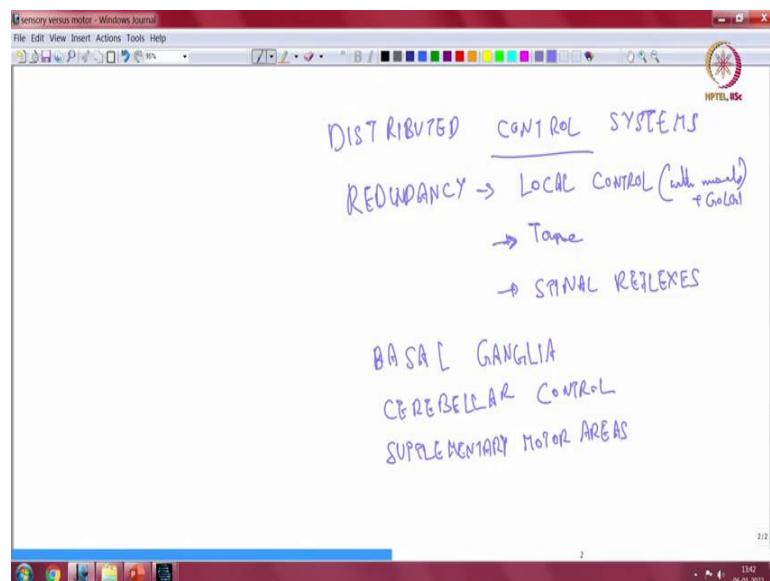 sensory versus motor - Windows Journal
File Edit View Insert Actions Tools Help
NPTEL, IISc
DISTRIBUTED CONTROL SYSTEMS
REDUNDANCY → LOCAL CONTROL (with
+ GOLGI
→ Tone
→ SPINAL REFLEXES
BASAL GANGLIA
CEREBELLAR CONTROL
SUPPLEMENTARY MOTOR AREAS
2/2
2
13:42